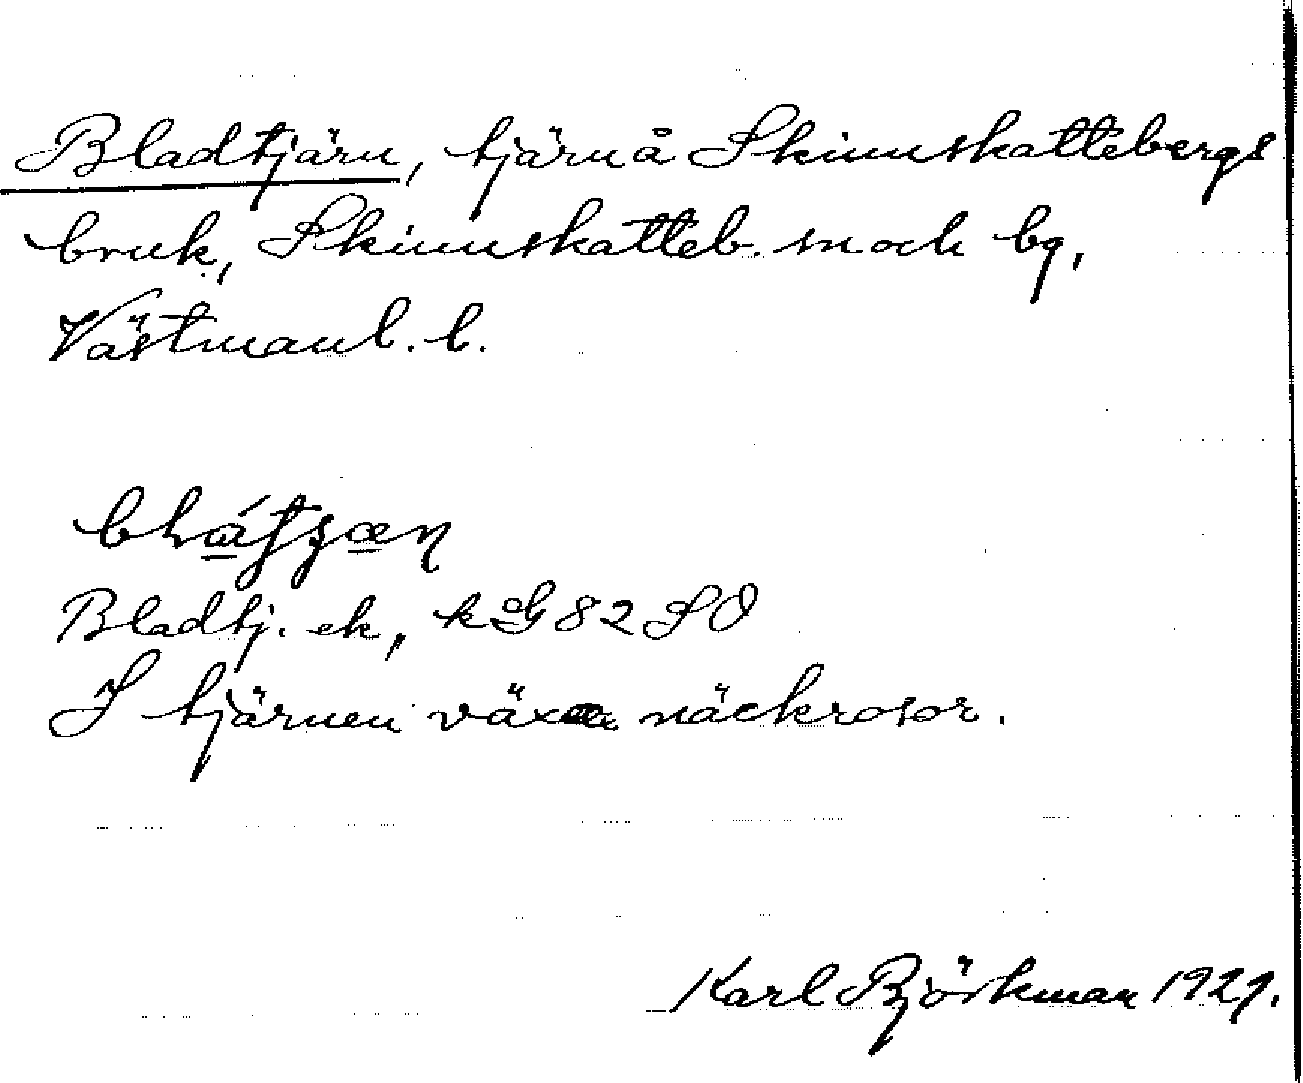 Bladtjärn, tjärn å Skinnskattebergs
bruk, Skinnskatteb. sn och bg,
Västmanl. l.
Bladtj. ek, kG82SO
I tjärnen växa näckrosor.
Karl Björkman 1929.